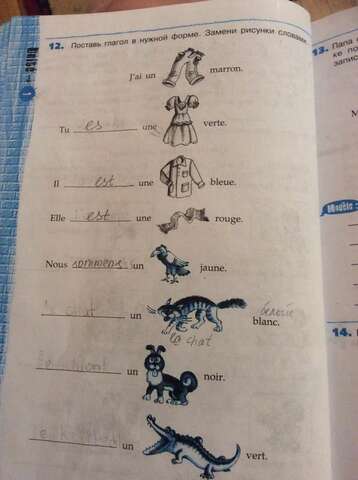 12. Поставь глагол в нужной форме. Замени рисунки словами
J'ai un marron.
Tu es une verte.
Il est une bleue.
Elle est une rouge.
Nous sommens un jaune.
chat un blanc.
la chat
un noir.
un vert.
13. Папа
запис
14.